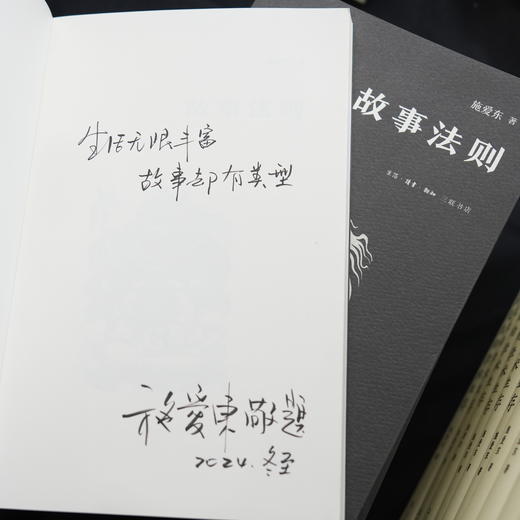 生活无限丰富
故事却有类型
施爱东敬题
2024.冬至
施爱东 著
故事法则
生活·读书·新知 三联书店